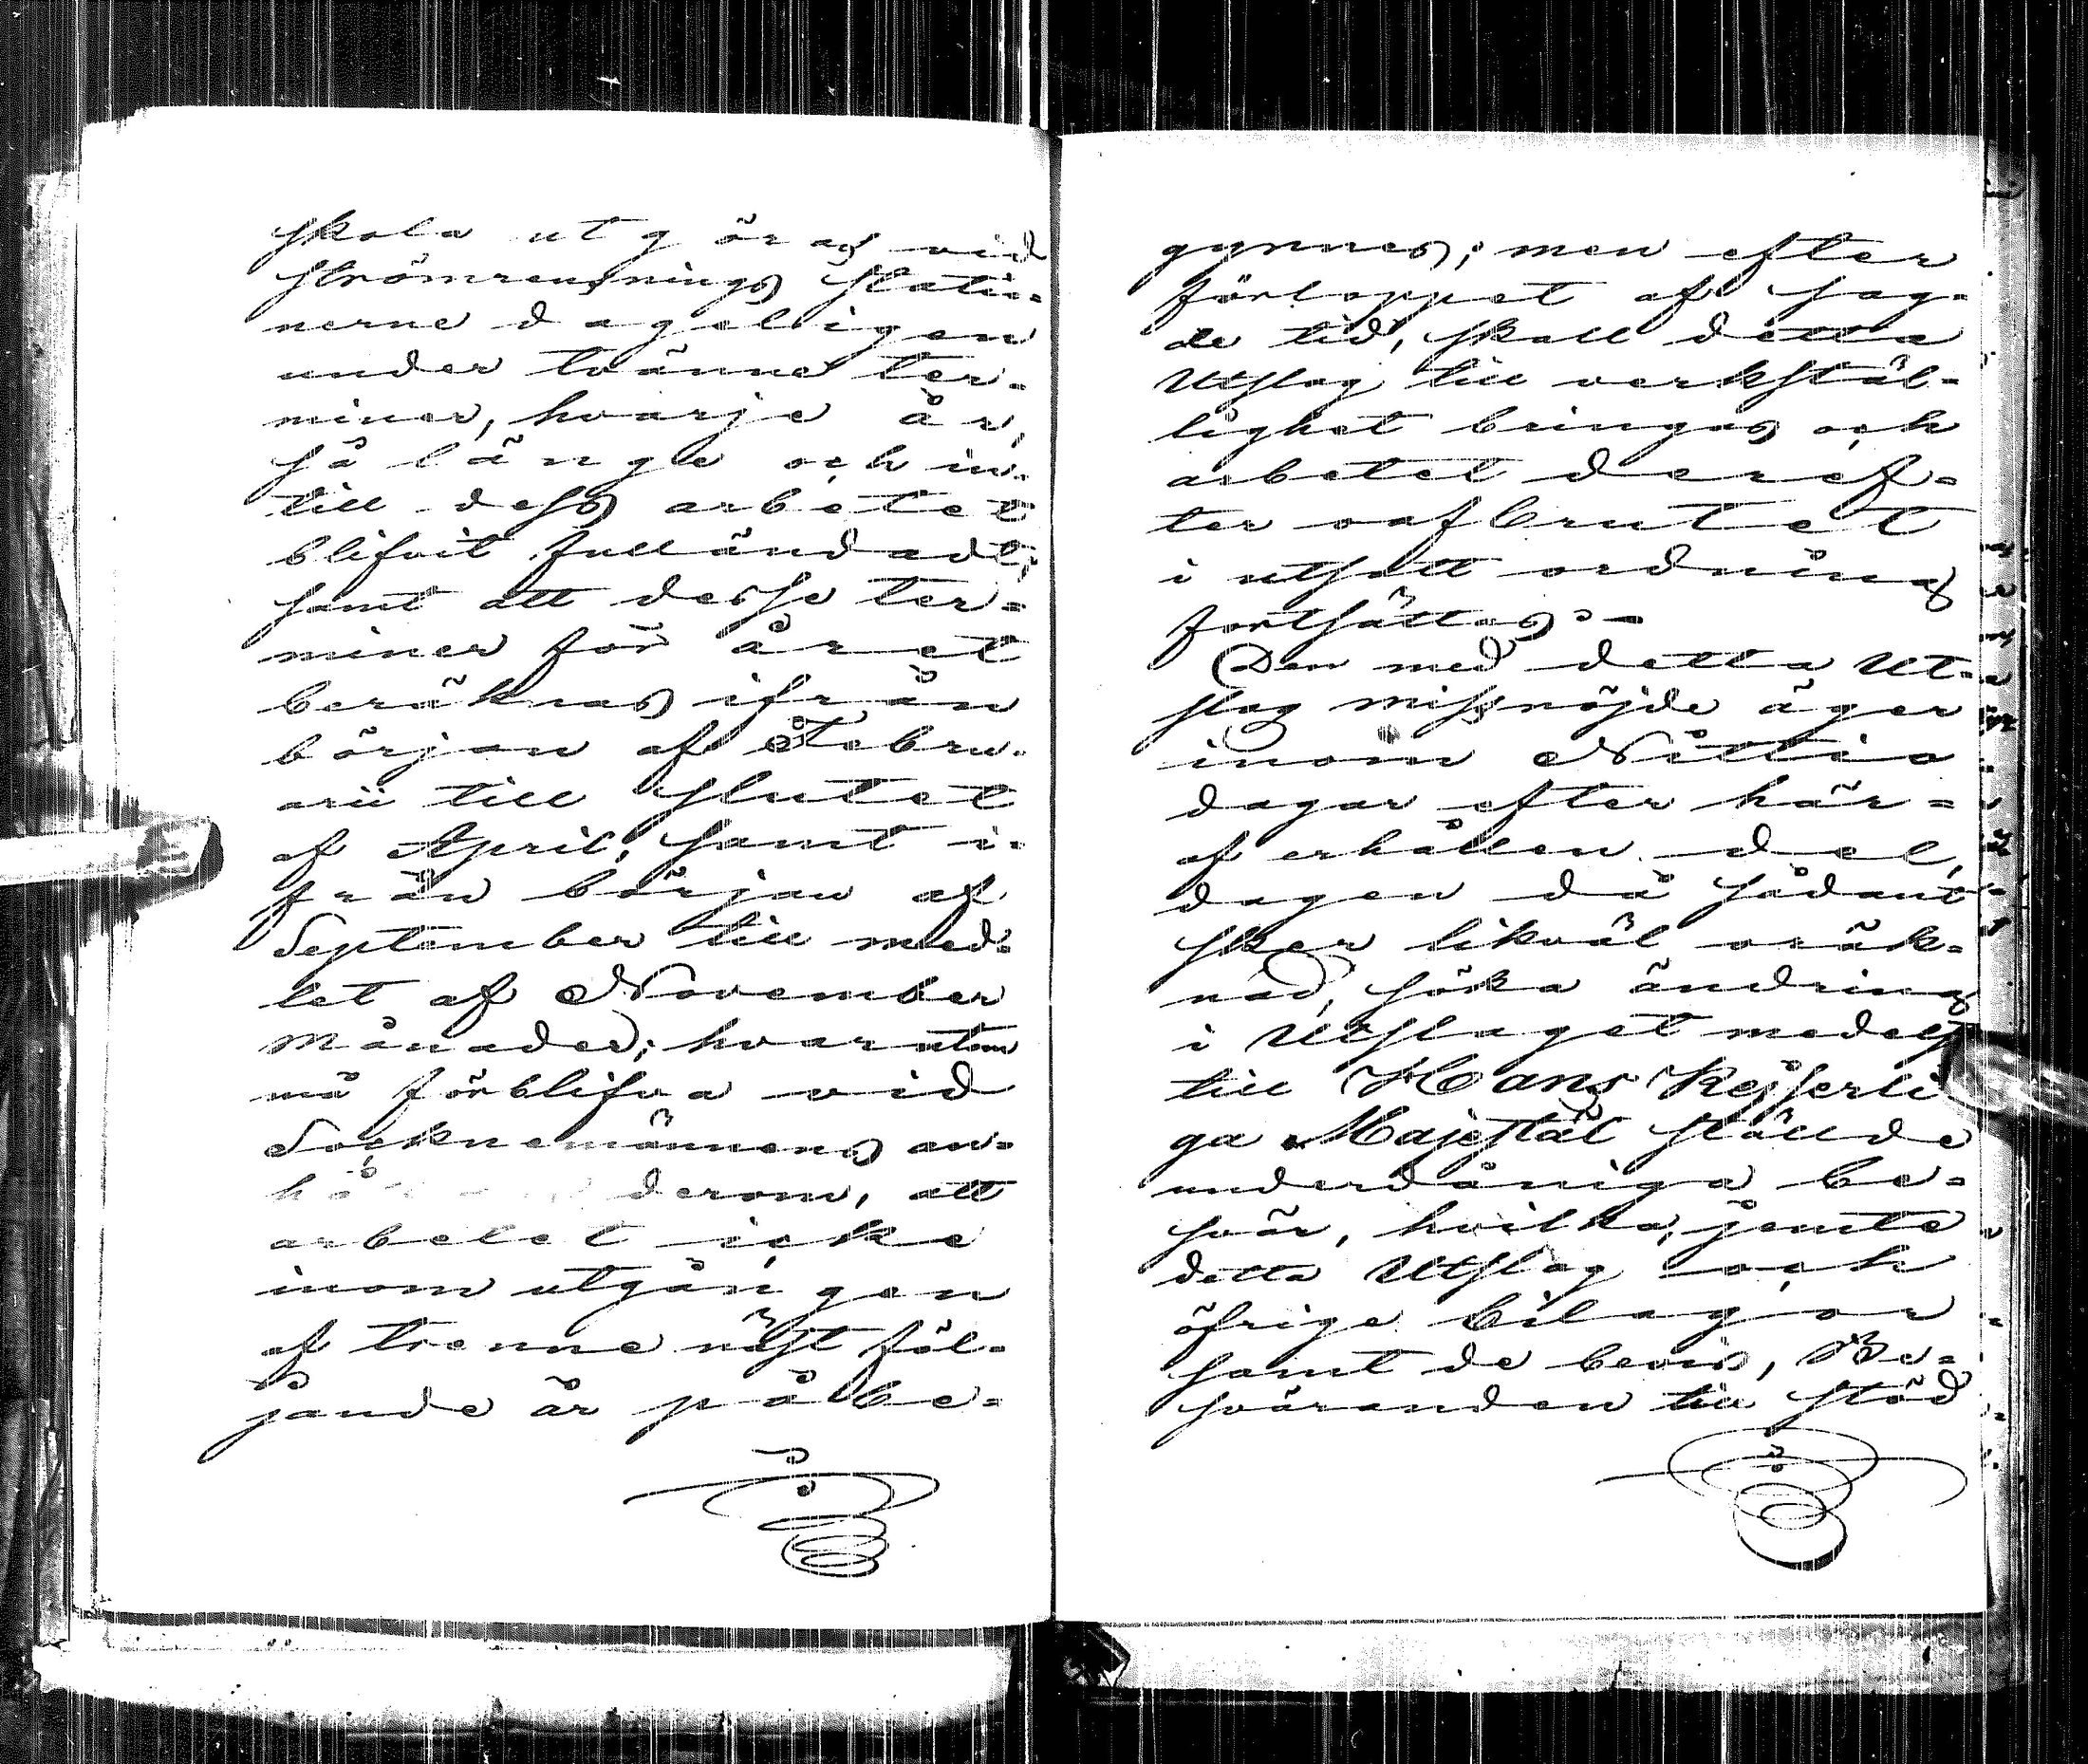 skola utgöras vid
strömrensnings statio=
nerne dageligen
under tvänne ter=
miner, hvarje år,
så länge och in=
till dess arbetet
blifvit fulländadt;
samt att desse ter=
miner för året
beräknas ifrån
början af Febru=
arii till slutet
af April, samt i=
från början af
September till med=
let af November
månader; hvarutom
må förblifva vid
Socknemännens an=
derom, att
arbetet icke
inom utgången
af trenne näst föl=
jande år påbe=
gynnes; men efter
förloppet af sag=
de tid, skall detta
Utslag till verkstäl=
lighet bringas och
arbetet deref=
ter oafbrutet
i utsatt ordning
fortsättas.=
Den med detta Ut=
slag missnöjde äger
inom Nittio
dagar efter här=
af erhållen del,
dagen då sådant
sker likväl oräk=
nad, söka ändring
i Utslaget medelst
till Hans Kejserli
ga Majestät stälde
underdåniga be=
svär, hvilka, jemte
detta Utslag och
öfrige bilagor
samt de bevis, Be=
sväranden till stöd